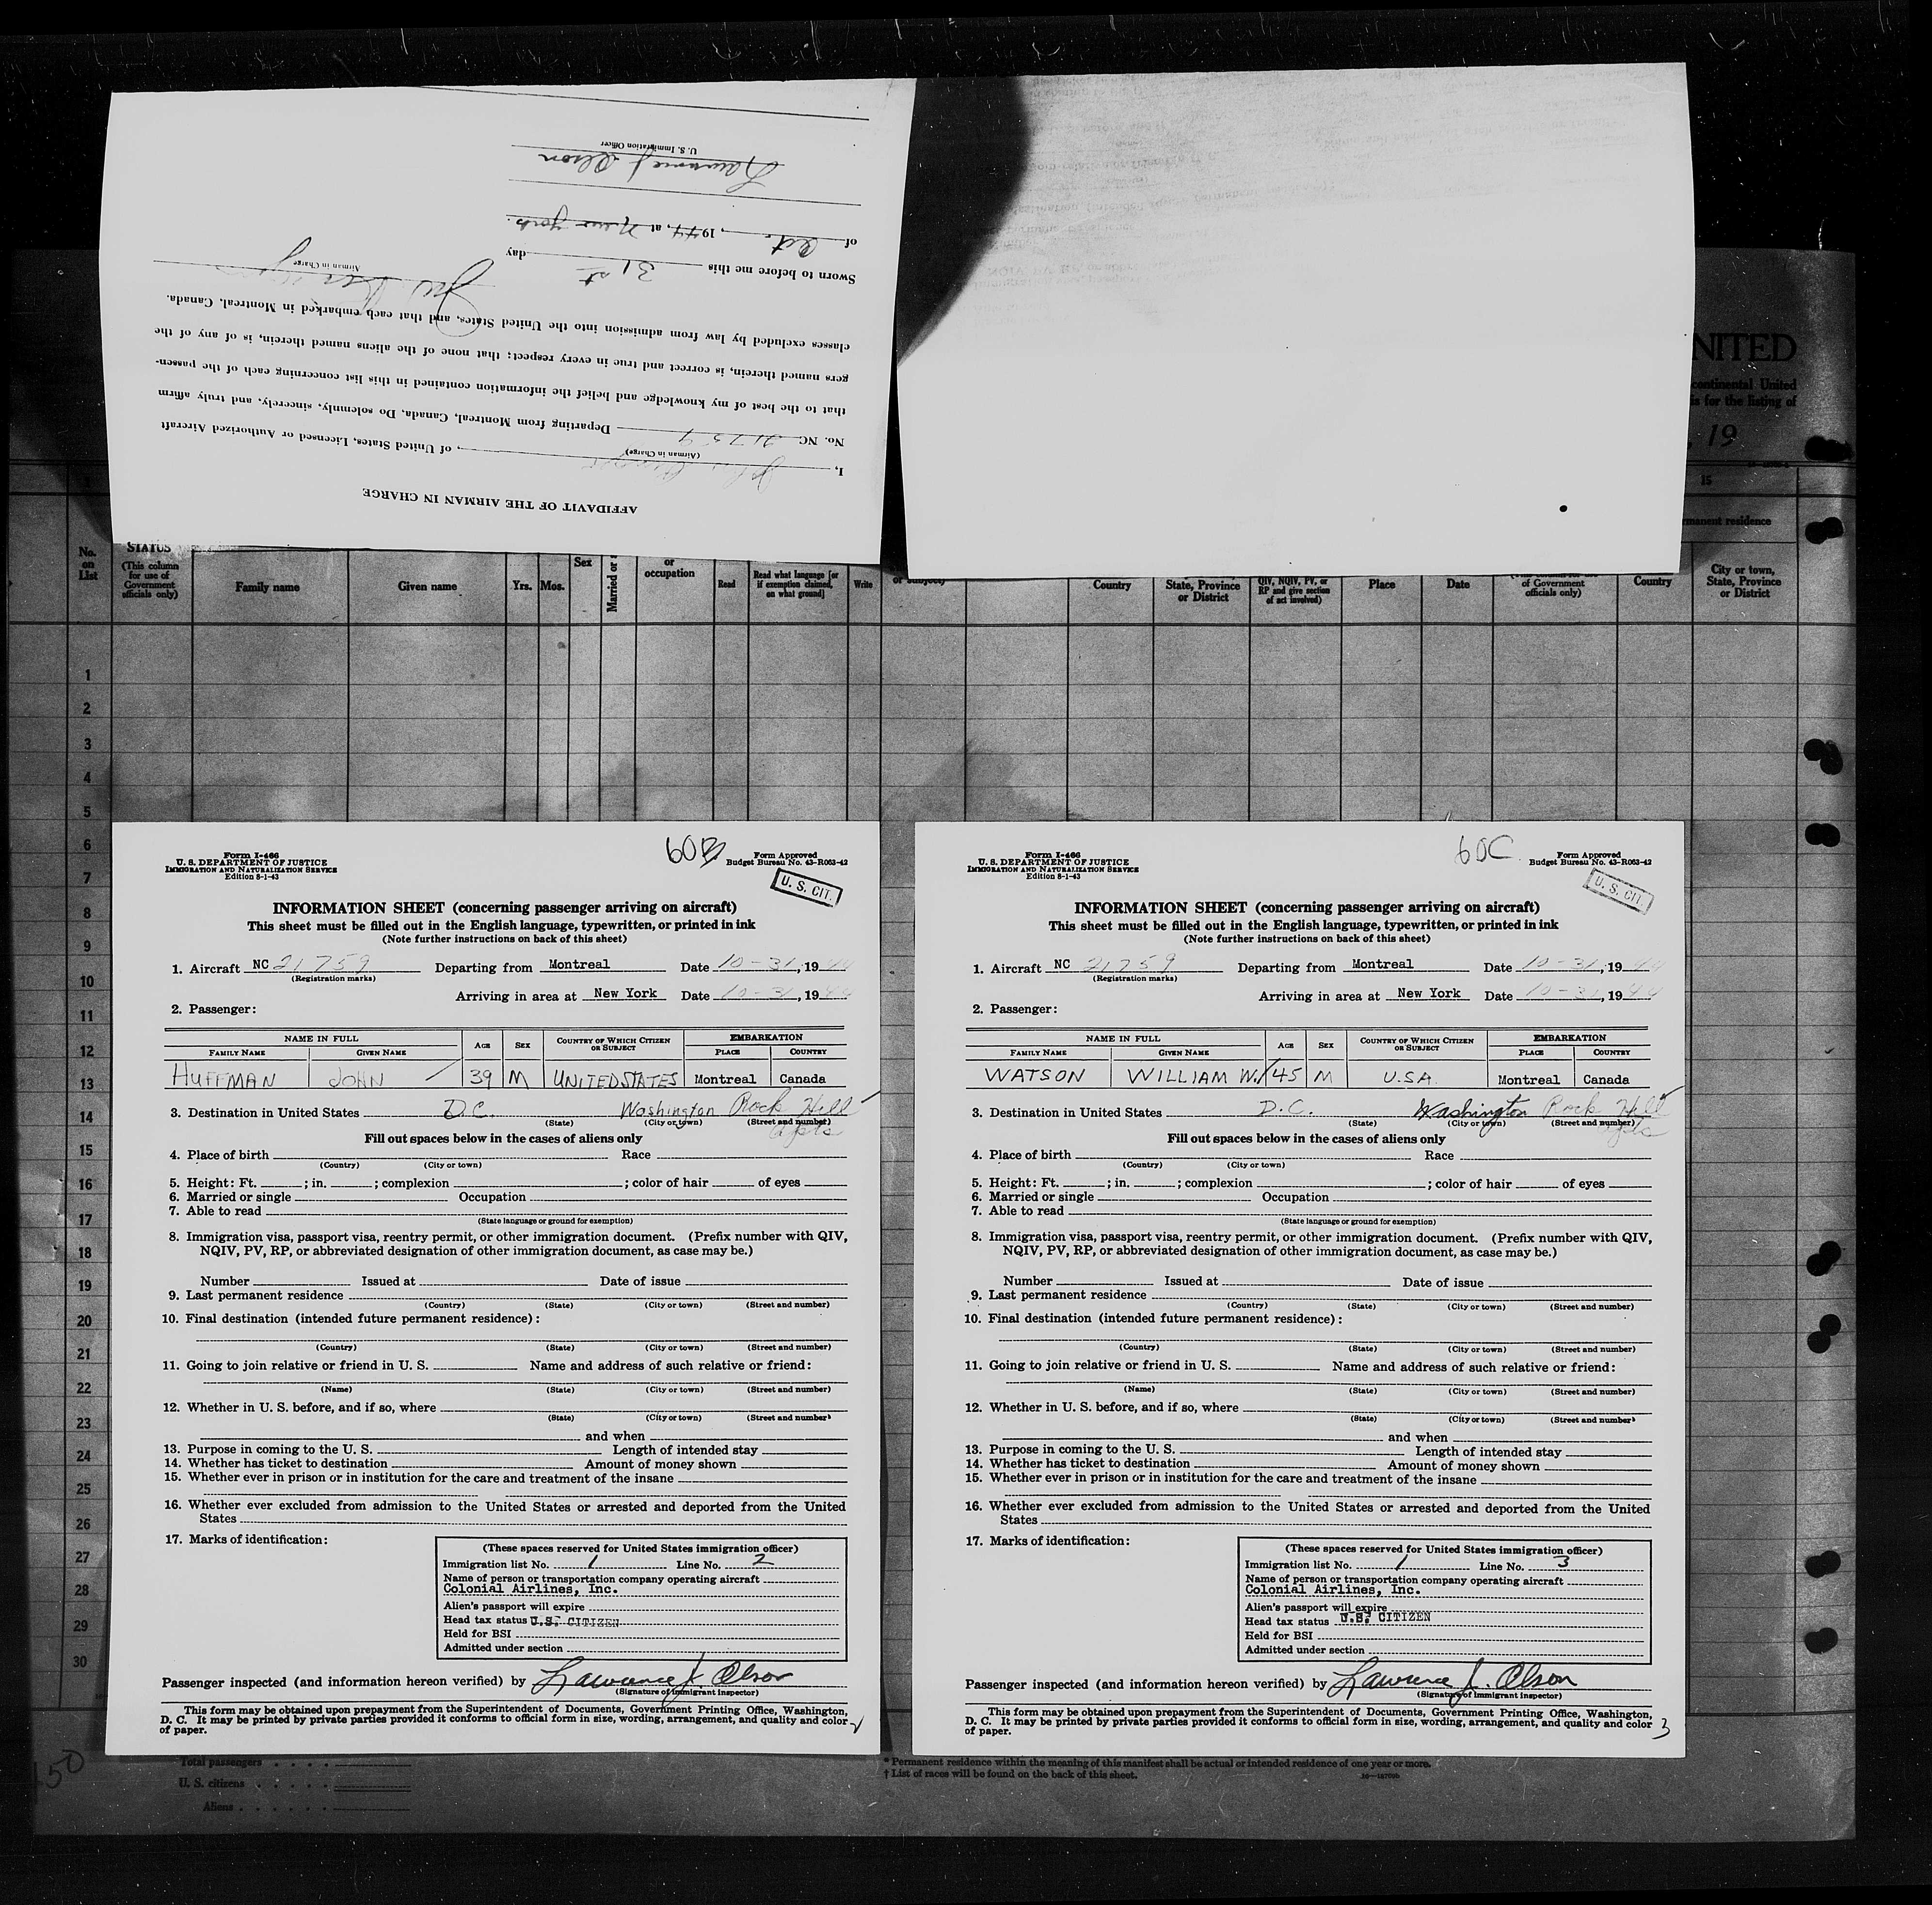 AFFIDAVIT OF THE AIRMAN IN CHARGE
I, , of United States, Licensed or Authorized Aircraft
(Airman in Charge)
No. NC 21759 Departing from Montreal, Canada, Do solemnly, sincerely, and truly affirm
that to the best of my knowledge and belief the information contained in this list concerning each of the passen-
gers named therein, is correct and true in every respect; that none of the aliens named therein, is of any of the
classes excluded by law from admission into the United States, and that each embarked in Montreal, Canada.
Airman in Charge
Sworn to before me this 31st day
of Oct., 1944, at New York.
Lawrence J. Olson
U. S. Immigration Officer
NITED
continental United
is for the listing of
, 19
15
manent residence
No.
on
List
STATUS
(This column
for use of
Government
officials only)
Family name
Given name
Yrs. Mos.
Sex
Married or s
or
occupation
Read
Read what language [or
if exemption claimed,
on what ground]
Write
or subject)
Country
State, Province
or District
QIV, NQIV, PV, or
RP and give section
of act involved)
Place
Date
of Government
officials only)
Country
City or town,
State, Province
or District
1
2
3
4
5
6
7
8
9
10
11
12
13
14
15
16
17
18
19
20
21
22
23
24
25
26
27
28
29
30
Form I-466
U. S. DEPARTMENT OF JUSTICE
IMMIGRATION AND NATURALIZATION SERVICE
Edition 8-1-43
60B
Form Approved
Budget Bureau No. 43-R063-42
U. S. CIT.
INFORMATION SHEET (concerning passenger arriving on aircraft)
This sheet must be filled out in the English language, typewritten, or printed in ink
(Note further instructions on back of this sheet)
1. Aircraft NC 21759 Departing from Montreal Date 10-31, 1944
(Registration marks)
Arriving in area at New York Date 10-31, 1944
2. Passenger:
NAME IN FULL AGE SEX COUNTRY OF WHICH CITIZEN OR SUBJECT EMBARKATION
FAMILY NAME GIVEN NAME PLACE COUNTRY
HUFFMAN JOHN 39 M UNITED STATES Montreal Canada
3. Destination in United States D.C. Washington Rock Hill Apts
(State) (City or town) (Street and number)
Fill out spaces below in the cases of aliens only
4. Place of birth Race
(Country) (City or town)
5. Height: Ft. ; in. ; complexion ; color of hair of eyes
6. Married or single Occupation
7. Able to read
(State language or ground for exemption)
8. Immigration visa, passport visa, reentry permit, or other immigration document. (Prefix number with QIV,
NQIV, PV, RP, or abbreviated designation of other immigration document, as case may be.)
Number Issued at Date of issue
9. Last permanent residence
(Country) (State) (City or town) (Street and number)
10. Final destination (intended future permanent residence):
(Country) (State) (City or town) (Street and number)
11. Going to join relative or friend in U. S. Name and address of such relative or friend:
(Name) (State) (City or town) (Street and number)
12. Whether in U. S. before, and if so, where
(State) (City or town) (Street and number)
and when
13. Purpose in coming to the U. S. Length of intended stay
14. Whether has ticket to destination Amount of money shown
15. Whether ever in prison or in institution for the care and treatment of the insane
16. Whether ever excluded from admission to the United States or arrested and deported from the United
States
17. Marks of identification:
(These spaces reserved for United States immigration officer)
Immigration list No. 1 Line No. 2
Name of person or transportation company operating aircraft
Colonial Airlines, Inc.
Alien's passport will expire
Head tax status U.S. CITIZEN
Held for BSI
Admitted under section
Passenger inspected (and information hereon verified) by Lawrence J. Olson
(Signature of immigrant inspector)
This form may be obtained upon prepayment from the Superintendent of Documents, Government Printing Office, Washington,
D. C. It may be printed by private parties provided it conforms to official form in size, wording, arrangement, and quality and color
of paper.
Form I-466
U. S. DEPARTMENT OF JUSTICE
IMMIGRATION AND NATURALIZATION SERVICE
Edition 8-1-43
60C
Form Approved
Budget Bureau No. 43-R063-42
U. S. CIT.
INFORMATION SHEET (concerning passenger arriving on aircraft)
This sheet must be filled out in the English language, typewritten, or printed in ink
(Note further instructions on back of this sheet)
1. Aircraft NC 21759 Departing from Montreal Date 10-31, 1944
(Registration marks)
Arriving in area at New York Date 10-31, 1944
2. Passenger:
NAME IN FULL AGE SEX COUNTRY OF WHICH CITIZEN OR SUBJECT EMBARKATION
FAMILY NAME GIVEN NAME PLACE COUNTRY
WATSON WILLIAM W. 45 M U.S.A. Montreal Canada
3. Destination in United States D.C. Washington Rock Hill Apts
(State) (City or town) (Street and number)
Fill out spaces below in the cases of aliens only
4. Place of birth Race
(Country) (City or town)
5. Height: Ft. ; in. ; complexion ; color of hair of eyes
6. Married or single Occupation
7. Able to read
(State language or ground for exemption)
8. Immigration visa, passport visa, reentry permit, or other immigration document. (Prefix number with QIV,
NQIV, PV, RP, or abbreviated designation of other immigration document, as case may be.)
Number Issued at Date of issue
9. Last permanent residence
(Country) (State) (City or town) (Street and number)
10. Final destination (intended future permanent residence):
(Country) (State) (City or town) (Street and number)
11. Going to join relative or friend in U. S. Name and address of such relative or friend:
(Name) (State) (City or town) (Street and number)
12. Whether in U. S. before, and if so, where
(State) (City or town) (Street and number)
and when
13. Purpose in coming to the U. S. Length of intended stay
14. Whether has ticket to destination Amount of money shown
15. Whether ever in prison or in institution for the care and treatment of the insane
16. Whether ever excluded from admission to the United States or arrested and deported from the United
States
17. Marks of identification:
(These spaces reserved for United States immigration officer)
Immigration list No. 1 Line No. 3
Name of person or transportation company operating aircraft
Colonial Airlines, Inc.
Alien's passport will expire
Head tax status U.S. CITIZEN
Held for BSI
Admitted under section
Passenger inspected (and information hereon verified) by Lawrence J. Olson
(Signature of immigrant inspector)
This form may be obtained upon prepayment from the Superintendent of Documents, Government Printing Office, Washington,
D. C. It may be printed by private parties provided it conforms to official form in size, wording, arrangement, and quality and color
of paper.
3
150
Total passengers
U. S. citizens
Aliens
* Permanent residence within the meaning of this manifest shall be actual or intended residence of one year or more.
† List of races will be found on the back of this sheet.